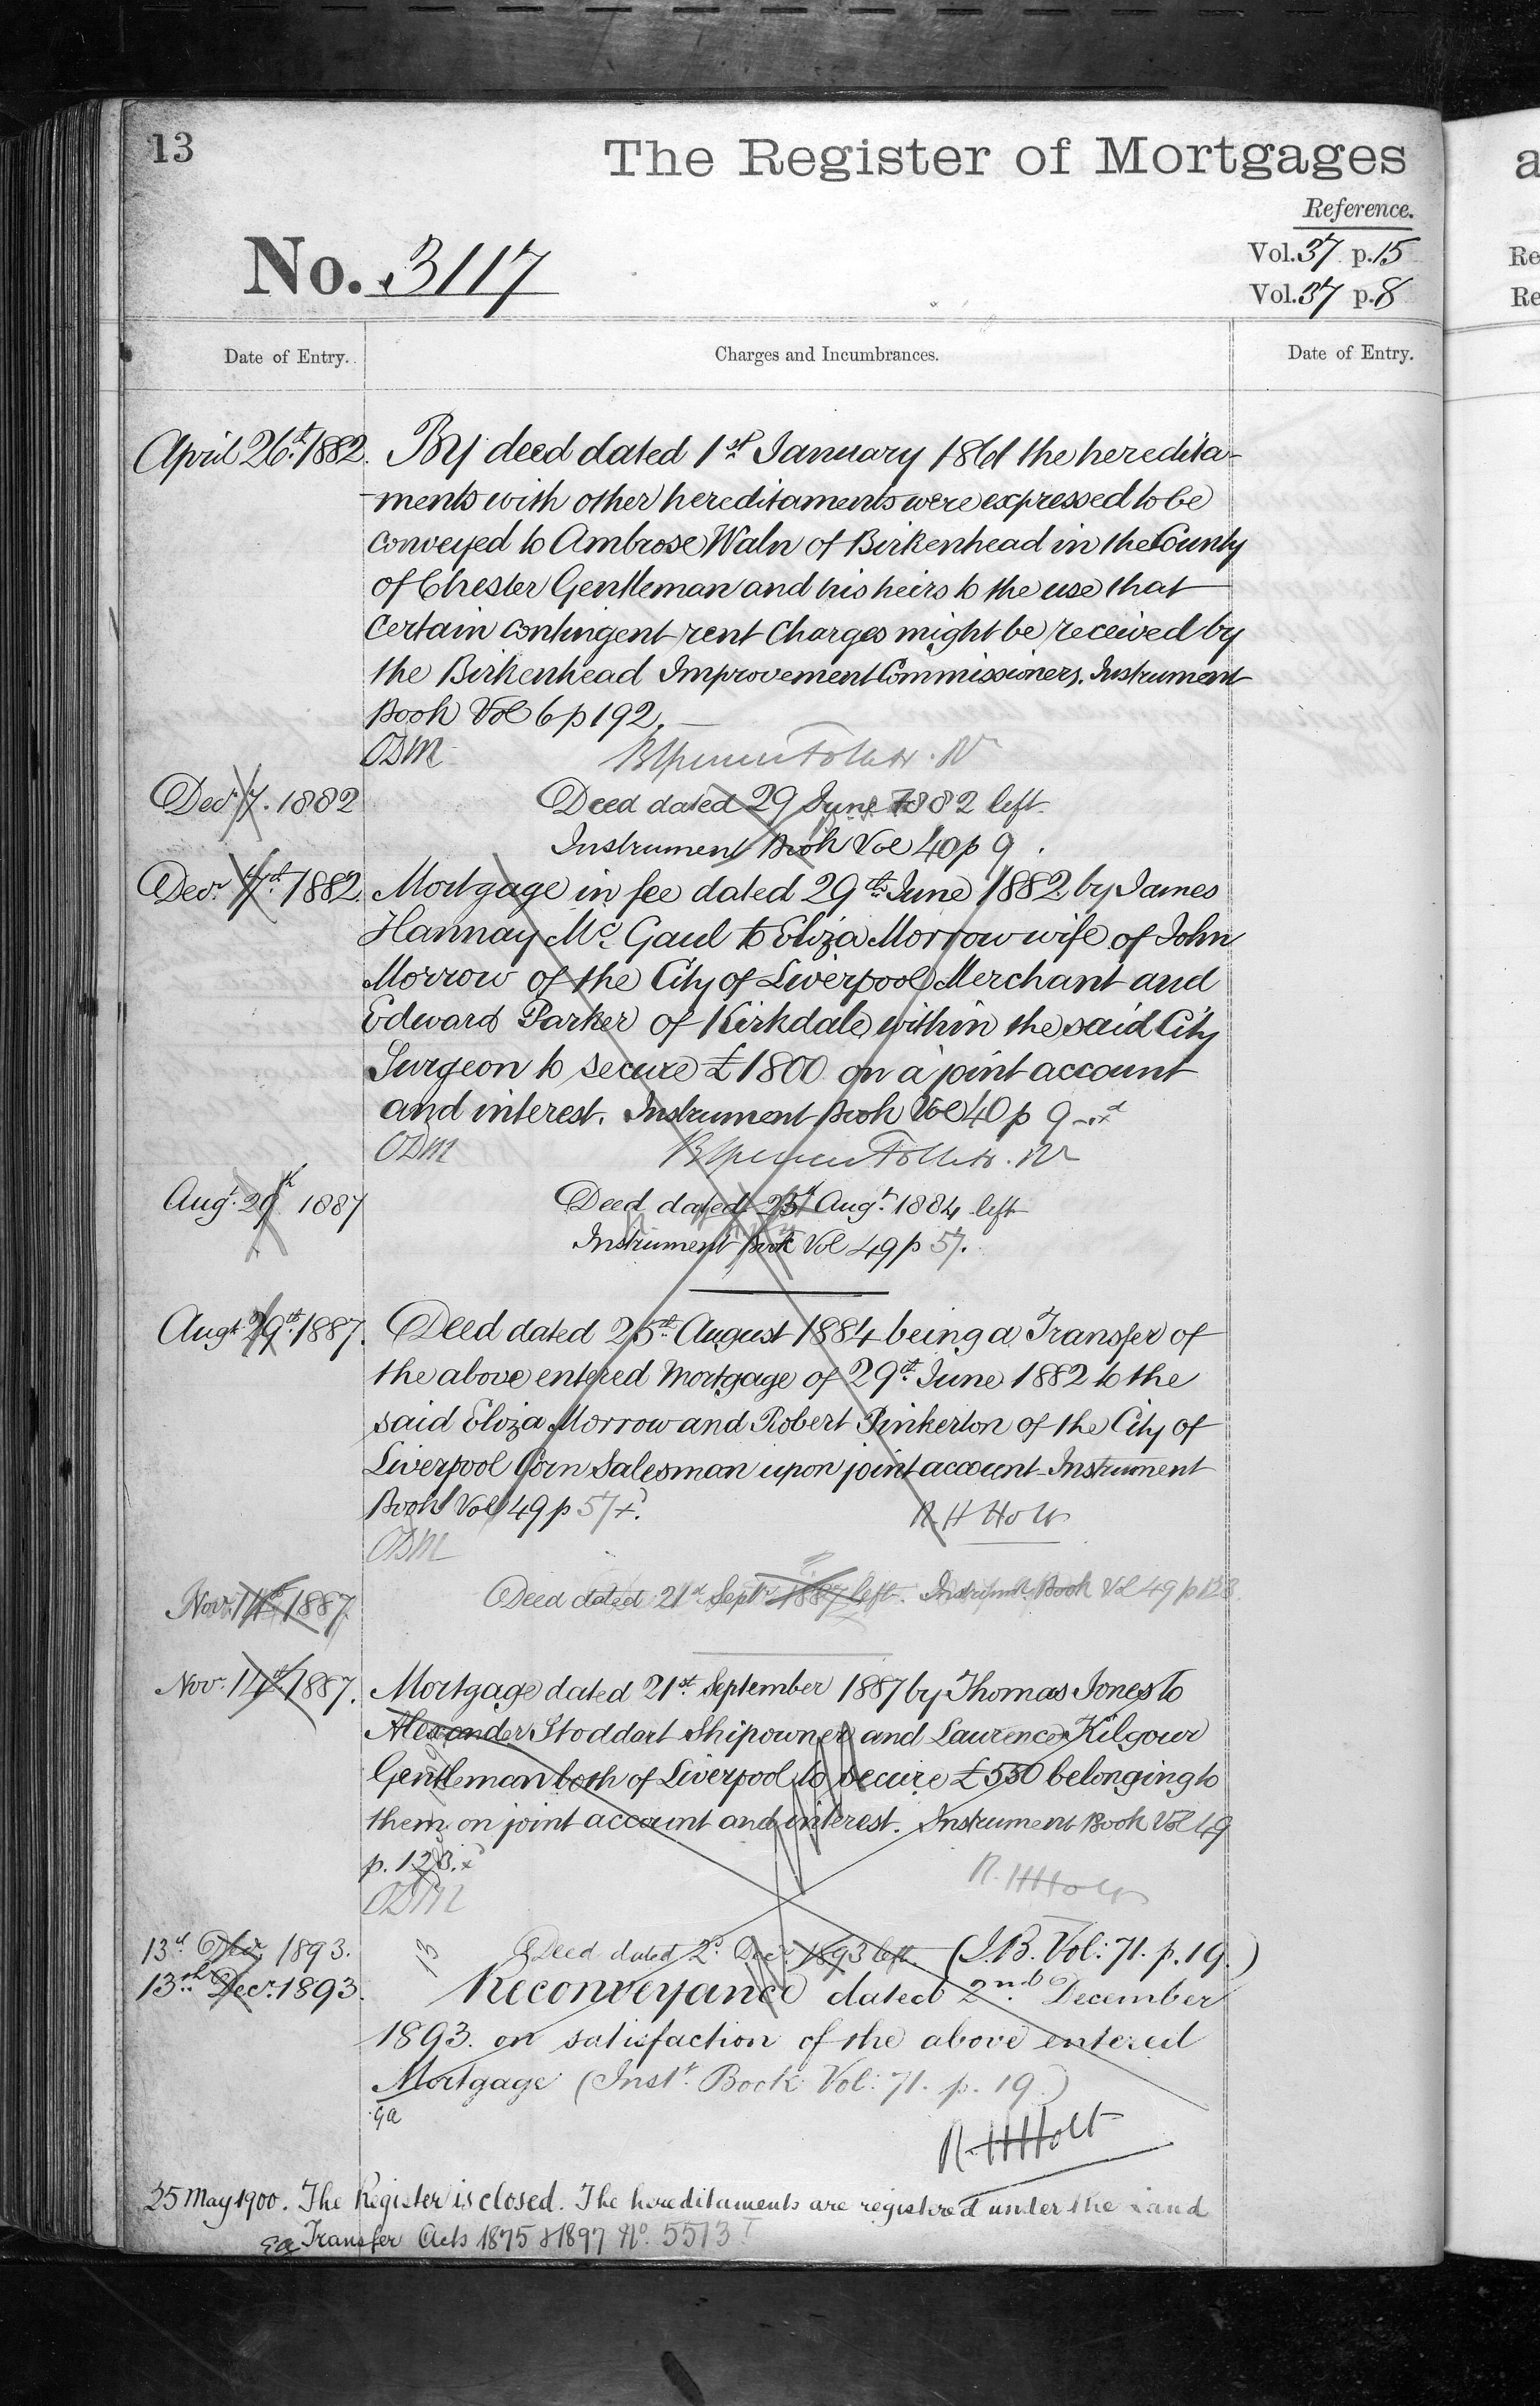 13
The Register of Mortgages
Reference.
No. 3117
Vol. 37 p. 15
Vol. 37 p. 8
Date of Entry. Charges and Incumbrances. Date of Entry.
April 26th 1882. By deed dated 1st January 1861 the heredita-
-ments with other hereditaments were expressed to be
conveyed to Ambrose Waln of Birkenhead in the County
of Chester Gentleman and his heirs to the use that
certain contingent rent Charges might be received by
the Birkenhead Improvement Commissioners. Instrument
Book Vol 6 p 192.
ODM
Decr 7. 1882 Deed dated 29 June 1882 left
Instrument Book Vol 40 p 9.
Decr 7th 1882. Mortgage in fee dated 29th June 1882 by James
Hannay Mc Gaul to Eliza Morrow wife of John
Morrow of the City of Liverpool Merchant and
Edward Parker of Kirkdale within the said City
Surgeon to secure £1800 on a joint account
and interest. Instrument Book Vol 40 p 9
ODM
Augt 29th 1887 Deed dated 25th Augt 1884 left
Instrument Book Vol 49 p 57.
Augt 29th 1887. Deed dated 25th August 1884 being a Transfer of
the above entered Mortgage of 29th June 1882 to the
said Eliza Morrow and Robert Pinkerton of the City of
Liverpool Corn Salesman upon joint account Instrument
Book Vol 49 p 57
R. H Holt
ODM
Novr 14th 1887. Deed dated 21st Septr 1887 left. Instrumt Book Vol 49 p 123.
Novr 14th 1887. Mortgage dated 21st September 1887 by Thomas Jones to
Alexander Stoddart Shipowner and Laurence Kilgour
Gentleman both of Liverpool to secure £550 belonging to
them on joint account and interest. Instrument Book Vol 49
p. 123.
R. H Holt
ODM
13th Decr 1893. Deed dated 2d Decr 1893 left. (I.B. Vol: 71. p. 19.)
13th Decr. 1893. Reconveyance dated 2nd December
1893. on satisfaction of the above entered
Mortgage (Instt. Book Vol: 71. p. 19.)
Ga
R. H Holt
25 May 1900. The Register is closed. The hereditaments are registered under the Land
Ea Transfer Acts 1875 & 1897 No. 5513
a
Re
Re